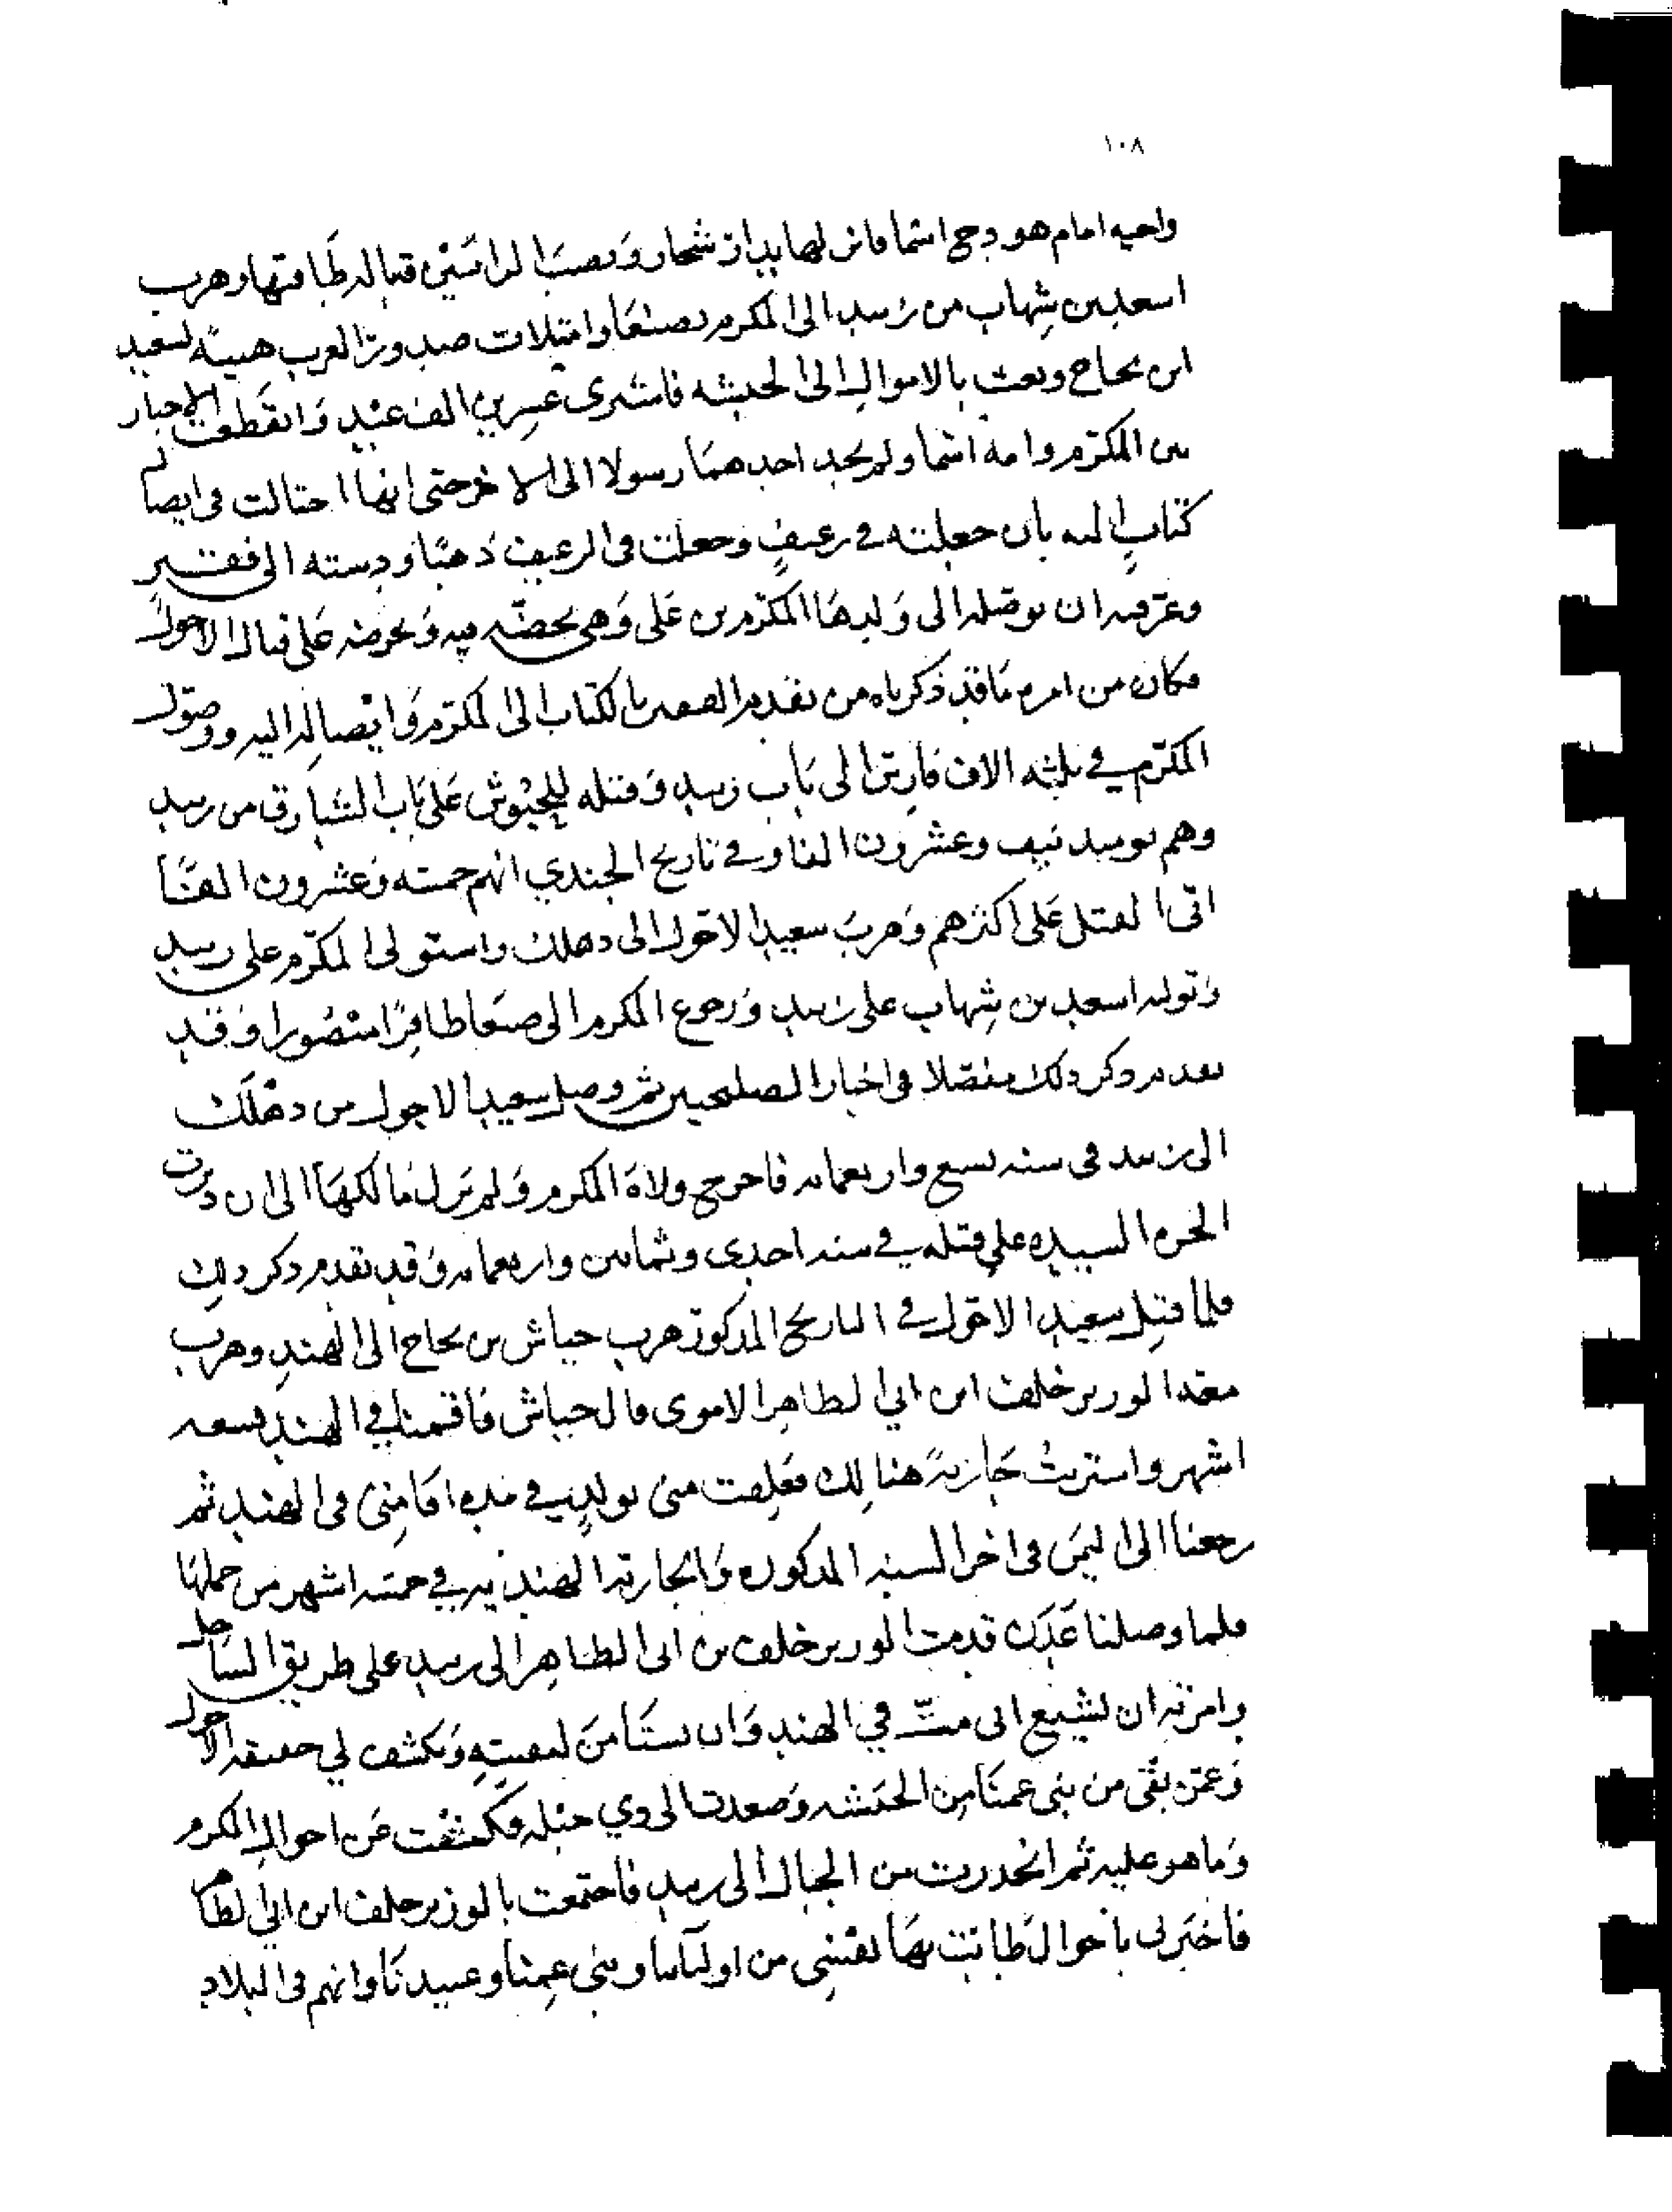 ١٠٨
واخيه امام هودج اسما فانزلها بدار شحار ونصب الراسين قبالة طاقتها وهرب
اسعد بن شهاب من زبيد الى المكرم بصنعا وامتلات صدور العرب هيبة لسعيد
ابن نجاح وبعث بالاموال الى الحبشه فاشترى عشرين الف عبد وانقطعت الاخبار
بين المكرم وامه اسما ولم يجد احدهما رسولا الى الاخر حتى انها احتالت في ايصال
كتاب اليه بان جعلته في رغيف وجعلت في الرغيف ذهبا ودسته الى فقير
وعرفته ان يوصله الى ولدها المكرم بن على وهي تحضه فيه وتحرضه على قتال الاحول
فكان من امره ما قد ذكرناه من تقدم الفقير بالكتاب الى المكرم وايصاله اليه ووصول
المكرم في ثلثه الاف فارس الى باب زبيد وقتله للجيوش على باب الشبارق من زبيد
وهم يوميد نيف وعشرون الفا وفي تاريخ الجندي انهم خمسه وعشرون الفا
اتى القتل على اكثرهم وهرب سعيد الاحول الى دهلك واستولى المكرم على زبيد
وتوليه اسعد بن شهاب على زبيد ورجوع المكرم الى صنعا ظافرا منصورا وقد
تقدم ذكر ذلك مفصلا في اخبار الصليحيين ثم وصل سعيد الاحول من دهلك
الى زبيد في سنه تسع واربعمايه فاخرج ولاة المكرم ولم يزل مالكها الى ان دبرت
الحره السيده على قتله في سنه احدى وثمانين واربعمايه وقد تقدم ذكر ذلك
فلما قتل سعيد الاحول في التاريخ المذكور هرب جياش بن نجاح الى الهند وهرب
معه الوزير خلف ابن ابي الطاهر الاموى قال جياش فاقمنا في الهند تسعه
اشهر واشتريت جارية هنالك فعلقت منى بولد في مده اقامتى في الهند ثم
رجعنا الى اليمن في اخر السنه المذكوره والجاريه الهنديه في خمسه اشهر من حملها
فلما وصلنا عدن قدمت الوزير خلف بن ابى الطاهر الى زبيد على طريق الساحل
وامرته ان يشيع انى مت في الهند وان يستامن لنفسه ويكشف لي حقيقه الاحوال
وعمن بقى من بنى عمنا من الحبشه وصعدت الى ذي جبله فكشفت عن احوال المكرم
وما هو عليه ثم انحدرت من الجبال الى زبيد فاجتمعت بالوزير خلف ابن ابي الطاهر
فاخبرنى باحوال طابت بها نفسى من اوليائنا وبنى عمنا وعبيدنا وانهم في البلاد